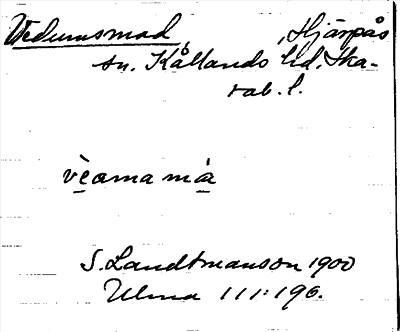 Vedumsmad, Hjärpås
sn. Kållands hd. Ska-
rab. l.
S. Landtmanson 1900
Ulma 111:196.